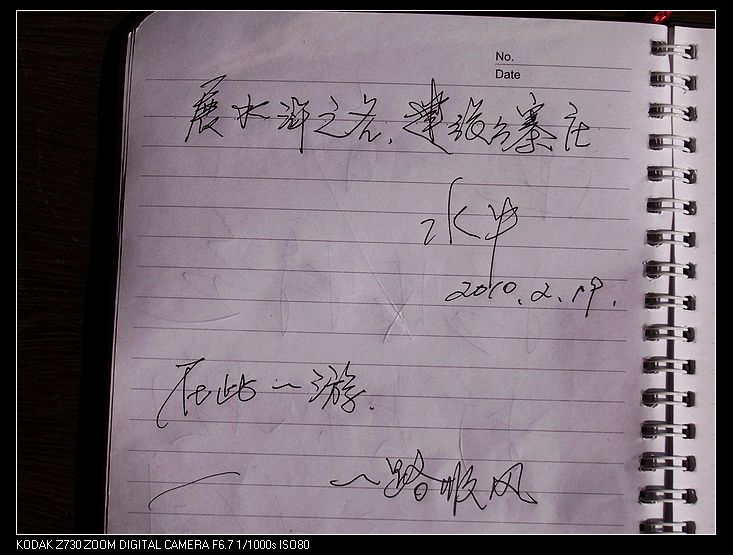 No.
Date
展水浒之名，建张公寨庄
水牛
2010.2.19.
在此一游.
一路顺风
KODAK Z730 ZOOM DIGITAL CAMERA F6.7 1/1000s ISO80